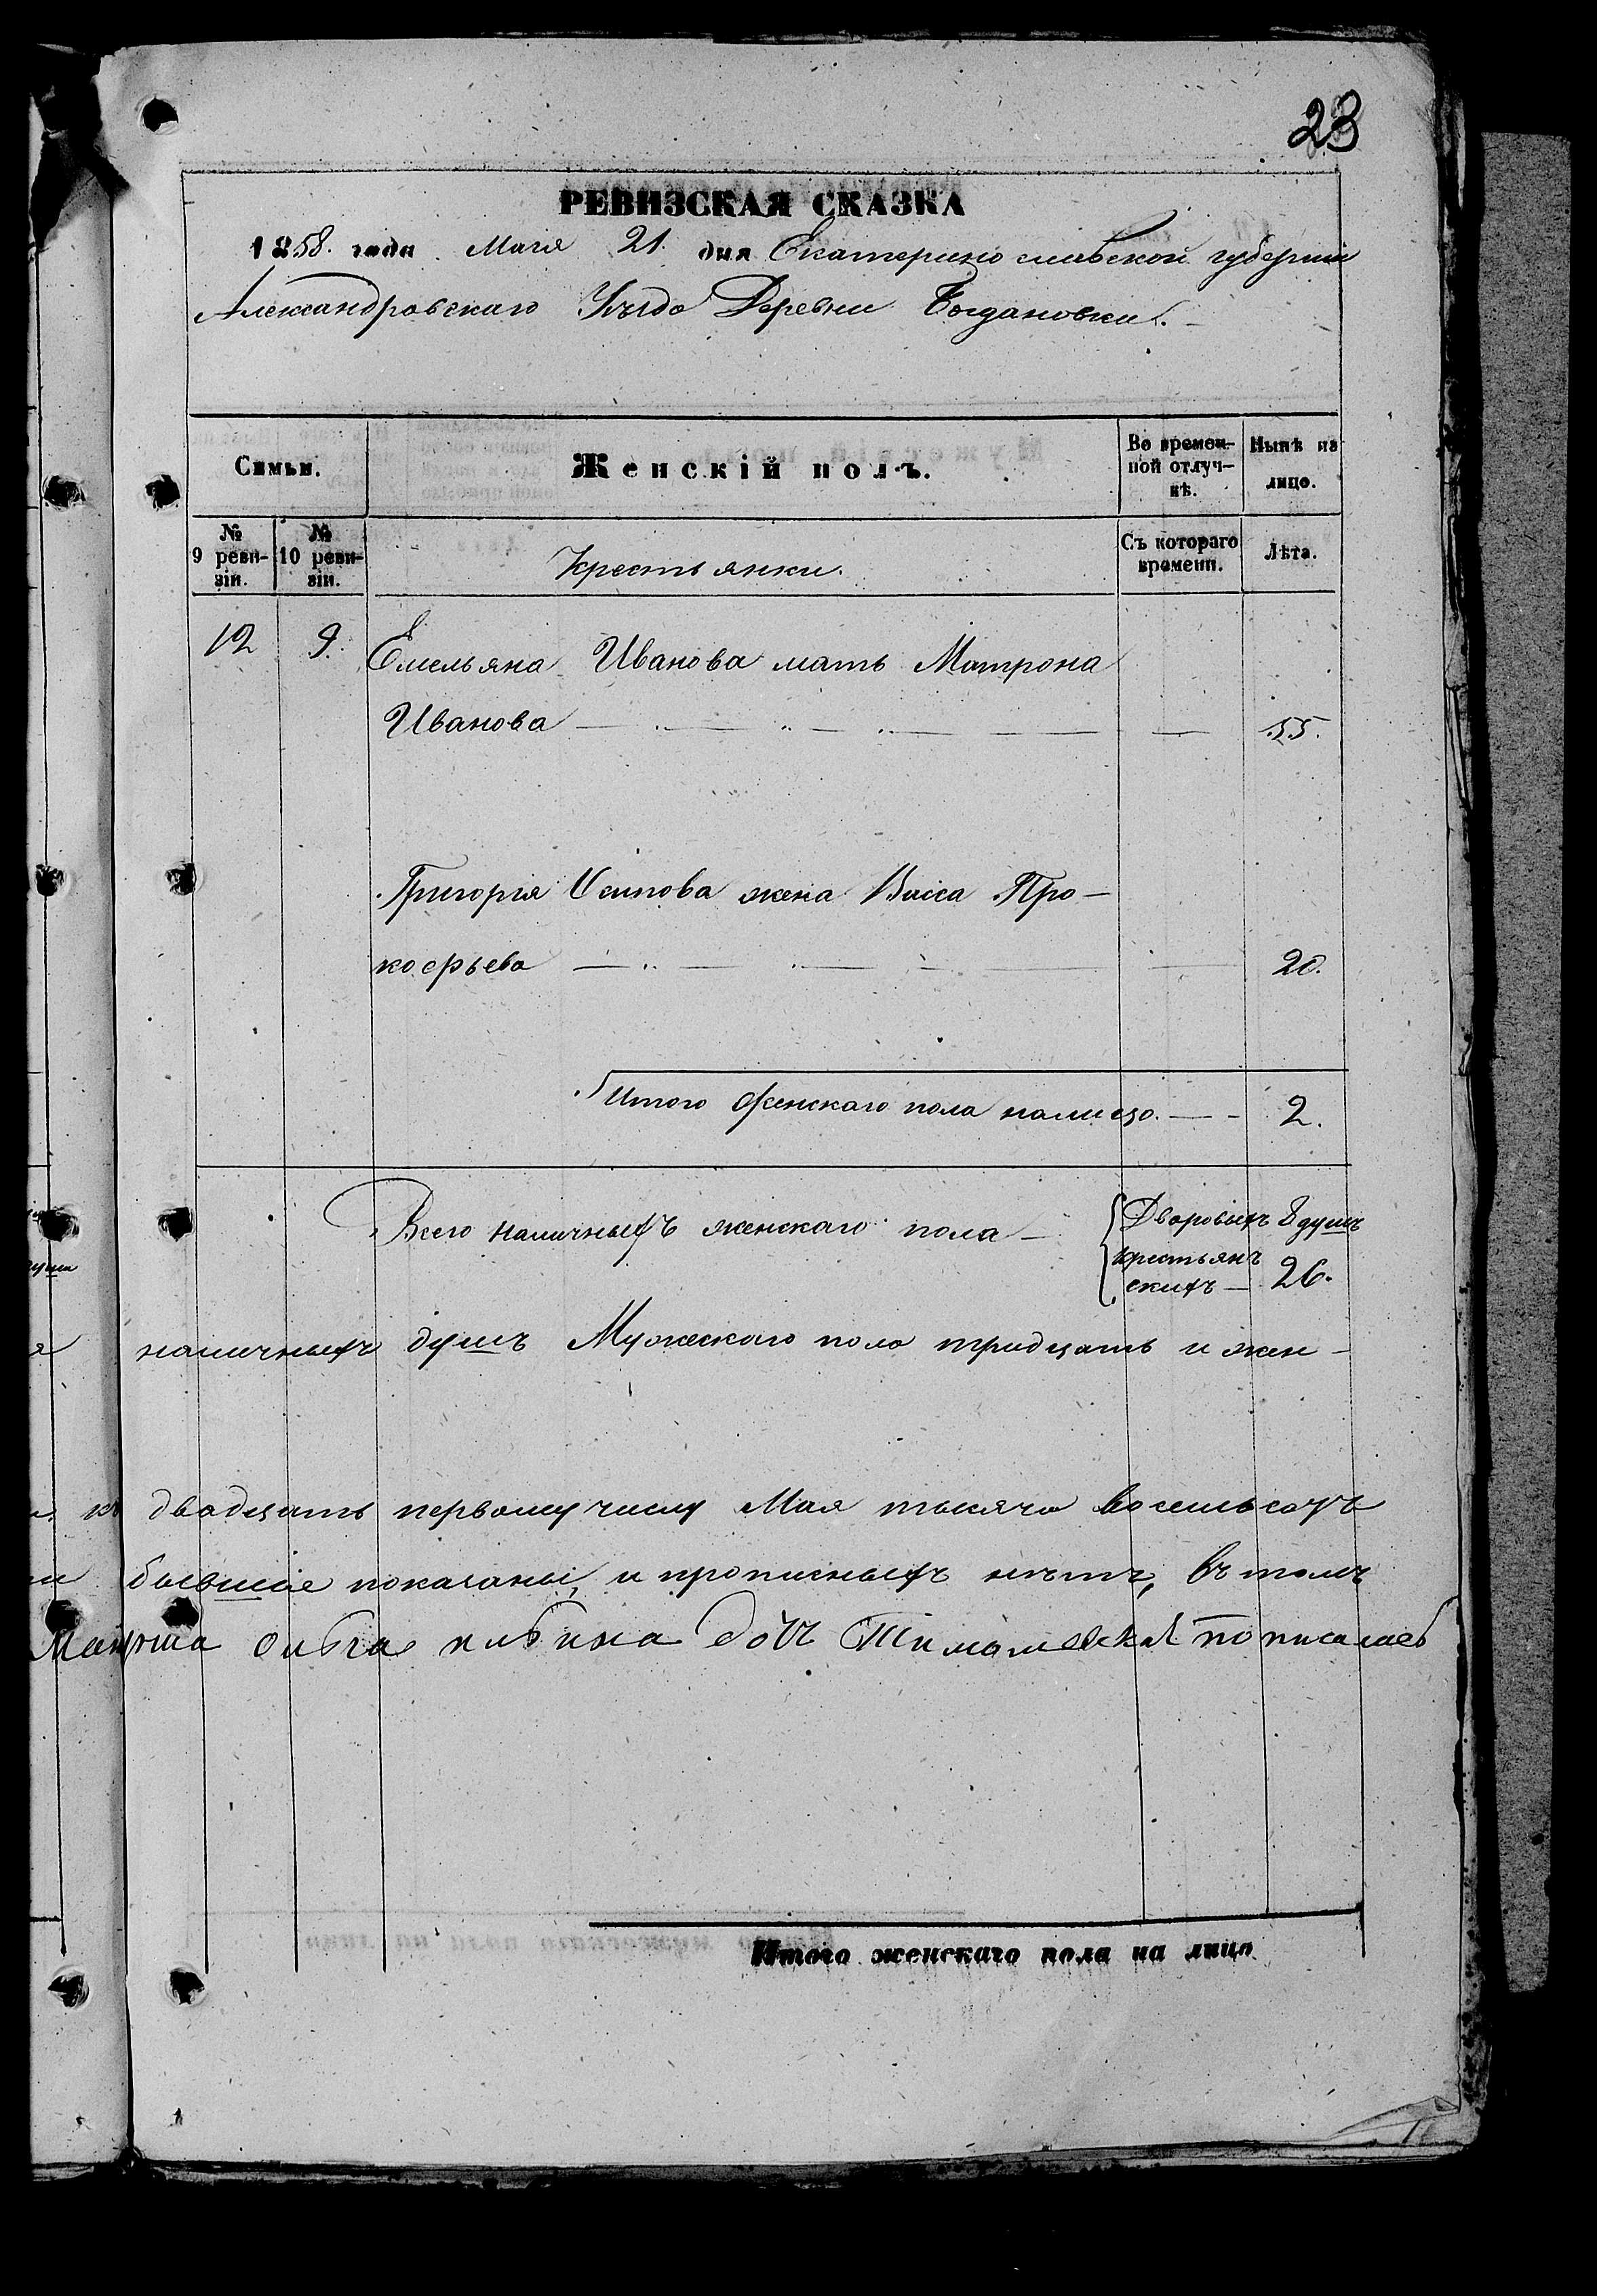 23
РЕВИЗСКАЯ СКАЗКА
1858. года Маія 21. дня Екатеринославской губерніи
Александровскаго Уѣзда Деревни Богдановки.
Семьи.
Женскій полъ.
Во времен-
ной отлуч-
кѣ.
Нынѣ на
лицо.
№
9 реви-
зіи.
№
10 реви-
зіи.
Крестьянки.
Съ котораго
времени.
Лѣта.
12 9. Емельяна Иванова мать Матрона
Иванова — 55.
Григорія Осипова жена Васса Про-
кофьева — 20.
Итого женскаго пола налицо. — 2.
Всего наличныхъ женскаго пола —
Дворовыхъ 8 душъ
крестьян
скихъ — 26.
наличныхъ душъ Мужескаго пола тридцать и жен-
къ двадцать первому числу Мая тысяча восемьсотъ
бывшіе показаны, и прописныхъ нѣтъ, въ томъ
дочь подписалась
Итого женскаго пола на лицо